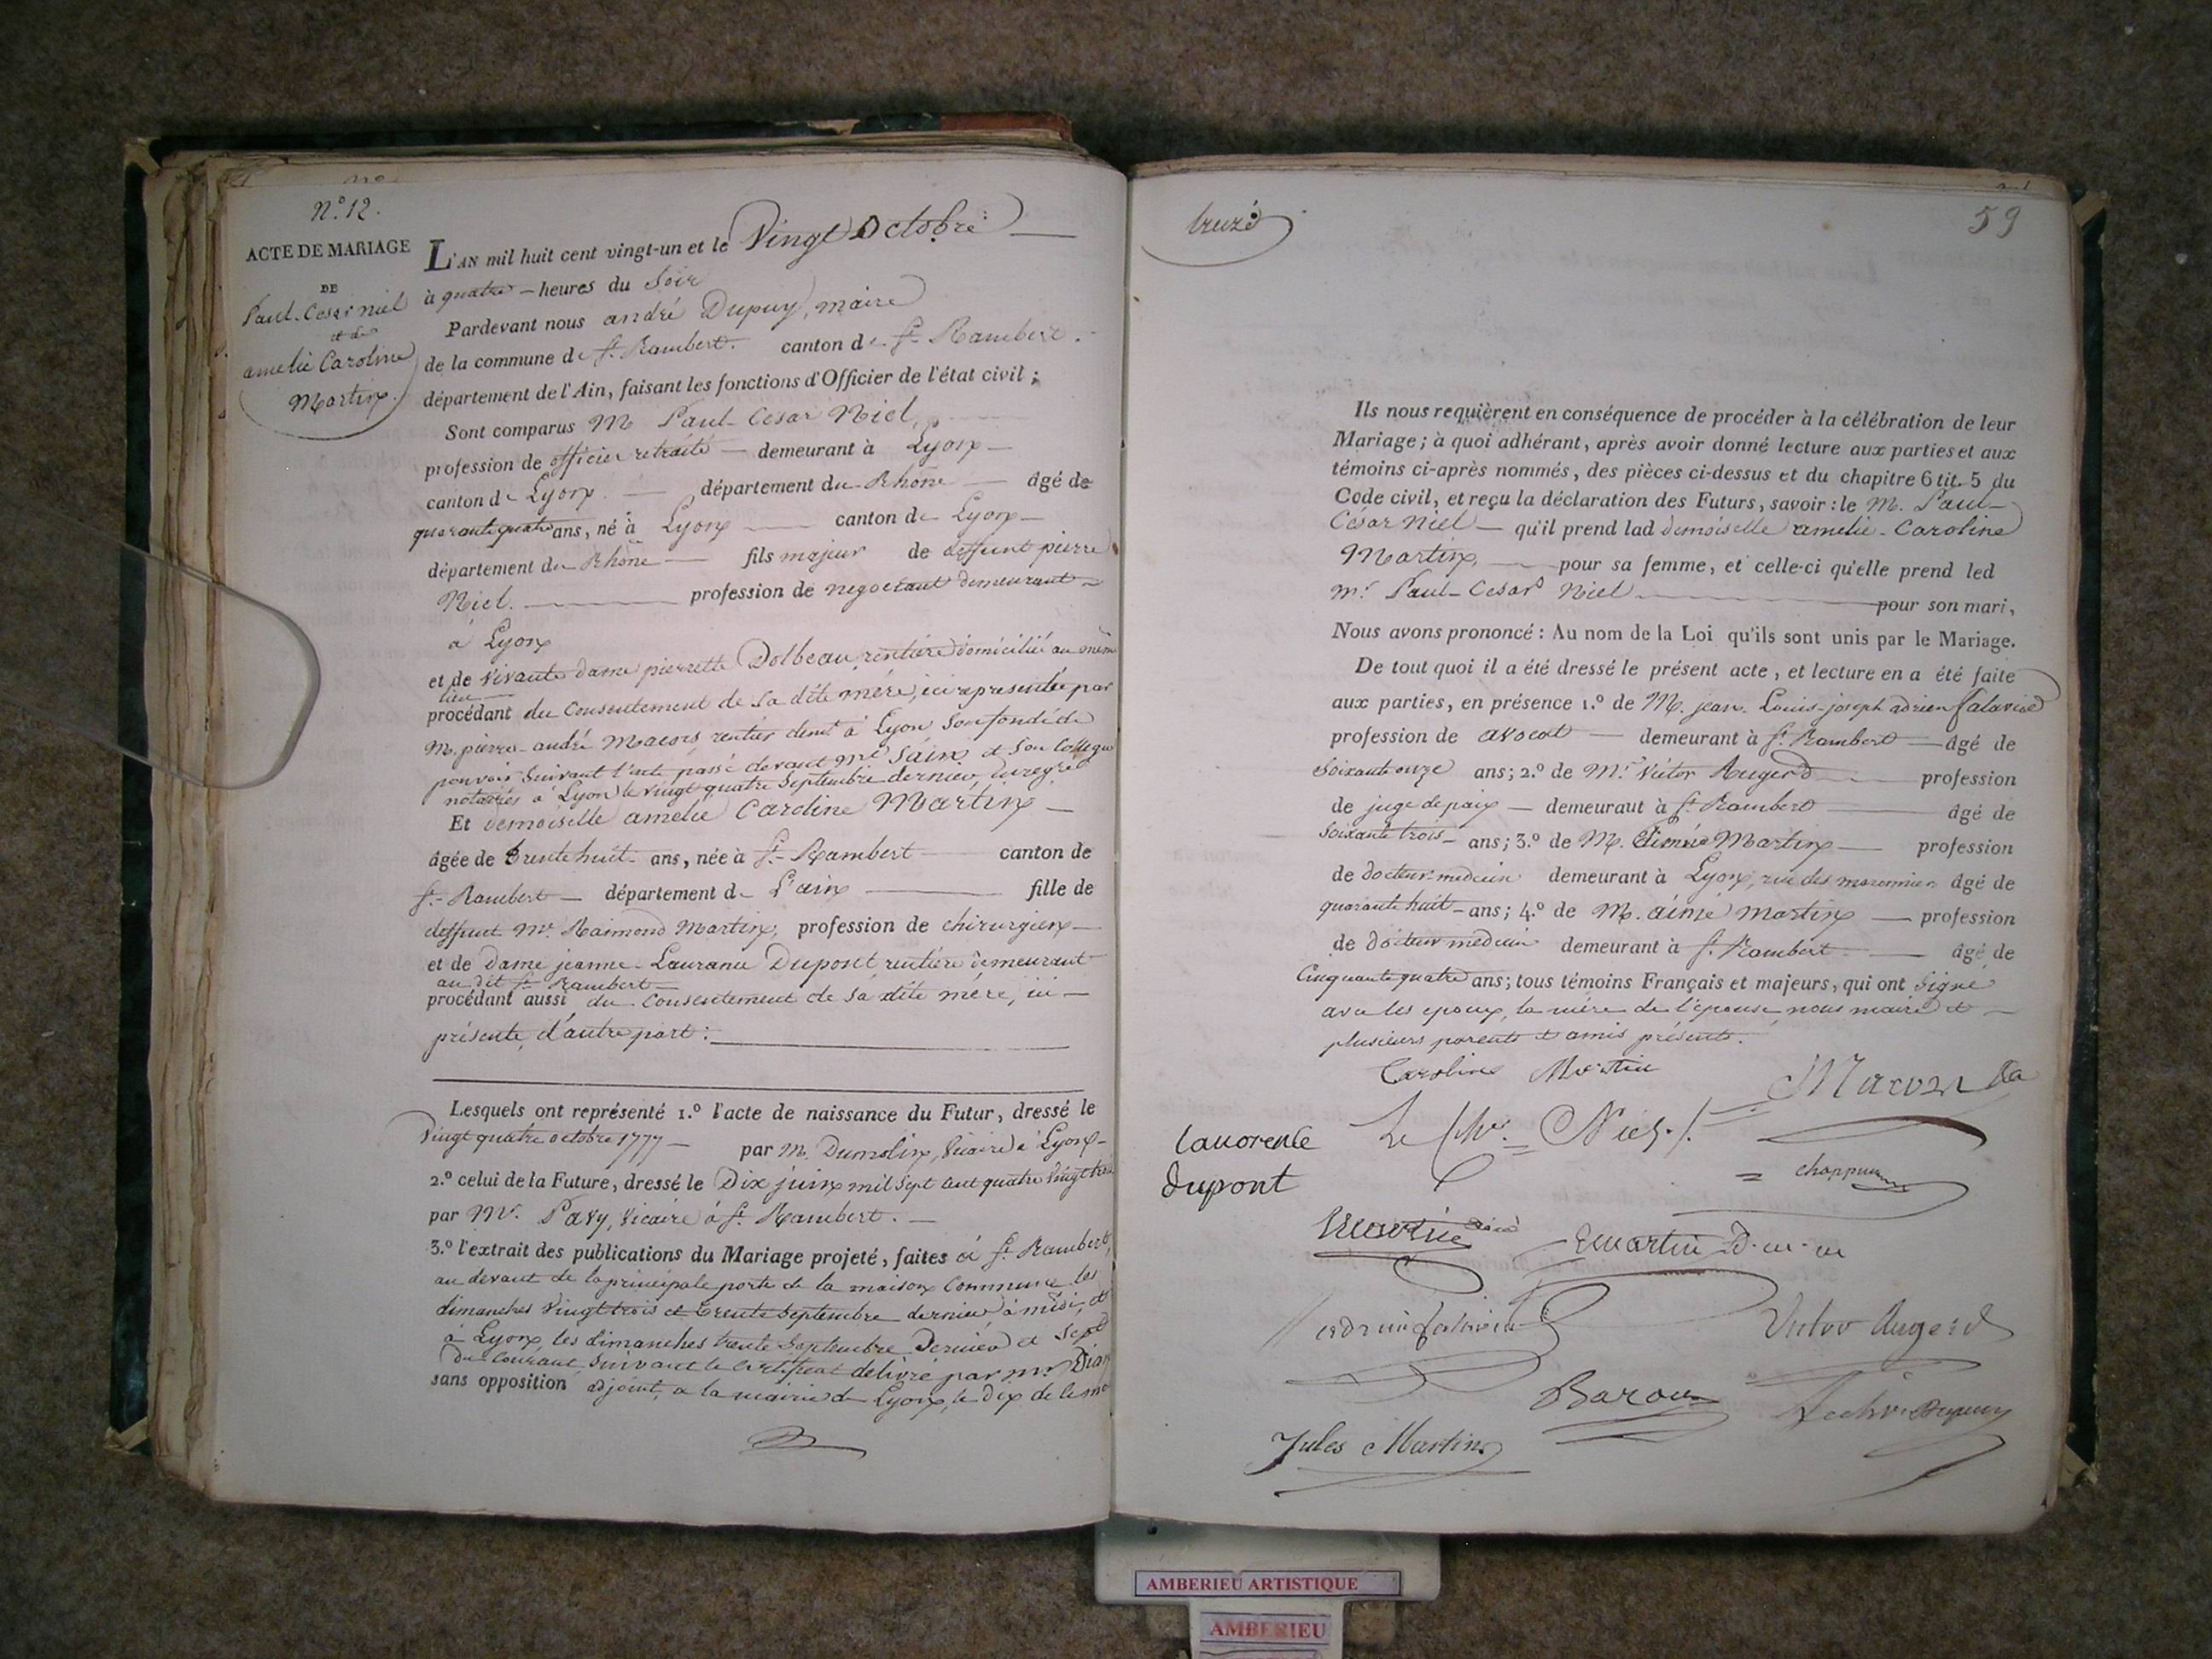 N.º 12.
ACTE DE MARIAGE
DE
Paul-Cesar niel
et de
amelie Caroline
Martin.
L'AN mil huit cent vingt-un et le Vingt Octobre
à quatre heures du Soir
Pardevant nous andré Dupuy, maire
de la commune de St. Rambert. canton de St. Rambert.
département de l'Ain, faisant les fonctions d'Officier de l'état civil;
Sont comparus M Paul-Cesar Niel,
profession de officier retraité demeurant à Lyon
canton de Lyon. département du Rhône âgé de
quarante quatre ans, né à Lyon canton de Lyon
département du Rhône fils majeur de deffunt pierre
Niel. profession de negociant demeurant
à Lyon
et de vivante dame pierrette Dolbeau, rentière domiciliée au même
lieu
procédant du Consentement de Sa dite mère, ici représentée par
M. pierre-andré Macors rentier demt à Lyon Son fondé de
pouvoir Suivant l'acte passé devant me Sain et Son Collegue
notaires à Lyon le vingt quatre Septembre dernier, enregré
Et demoiselle amelie Caroline Martin
âgée de trente huit ans, née à St. Rambert canton de
St. Rambert département de L'ain fille de
deffunt Mr. Raimond Martin, profession de chirurgien
et de dame jeanne-Laurance Dupont rentière demeurant
au dit St. Rambert
procédant aussi du Consentement de Sa dite mère, ici
présente, d'autre part:
Lesquels ont représenté 1.º l'acte de naissance du Futur, dressé le
Vingt quatre octobre 1777 par M. Dumolin, Vicaire à Lyon
2.º celui de la Future, dressé le Dix juin mil Sept cent quatre Vingt trois
par Mr. Pavy, Vicaire à St. Rambert.
3.º l'extrait des publications du Mariage projeté, faites à St. Rambert,
au devant de la principale porte de la maison Commune les
dimanches Vingt trois et trente Septembre dernier à midi, et
à Lyon, les dimanches trente Septembre Dernier et Sept
du Courant, Suivant le Certificat délivré par mr
sans opposition adjoint, a la mairie de Lyon, le Dix de
treize
59
Ils nous requièrent en conséquence de procéder à la célébration de leur
Mariage; à quoi adhérant, après avoir donné lecture aux parties et aux
témoins ci-après nommés, des pièces ci-dessus et du chapitre 6 tit. 5 du
Code civil, et reçu la déclaration des Futurs, savoir: le M. Paul-
César Niel qu'il prend lad demoiselle amelie-Caroline
Martin, pour sa femme, et celle-ci qu'elle prend led
mr. Paul-Cesar Niel pour son mari,
Nous avons prononcé: Au nom de la Loi qu'ils sont unis par le Mariage.
De tout quoi il a été dressé le présent acte, et lecture en a été faite
aux parties, en présence 1.º de M. jean-Louis-joseph adrien
profession de avocat demeurant à St. Rambert âgé de
Soixante onze ans; 2.º de Mr. Victor Augerd profession
de juge de paix demeurant à St. Rambert âgé de
Soixante trois ans; 3.º de M. Martin profession
de docteur-medecin demeurant à Lyon, rue des maronniers âgé de
quarante huit ans; 4.º de M. aimé Martin profession
de docteur medecin demeurant à St. Rambert âgé de
Cinquante quatre ans; tous témoins Français et majeurs, qui ont Signé
avec les epoux, la mère de l'épouse, nous maire et
plusieurs parents et amis présents.
Caroline Martin
Le Cher. Niel
lauorence
dupont
Martin ainé
Martin D. m. m
Victor Augerd
Baron
Dupuy
Jules Martin
AMBERIEU ARTISTIQUE
AMBERIEU